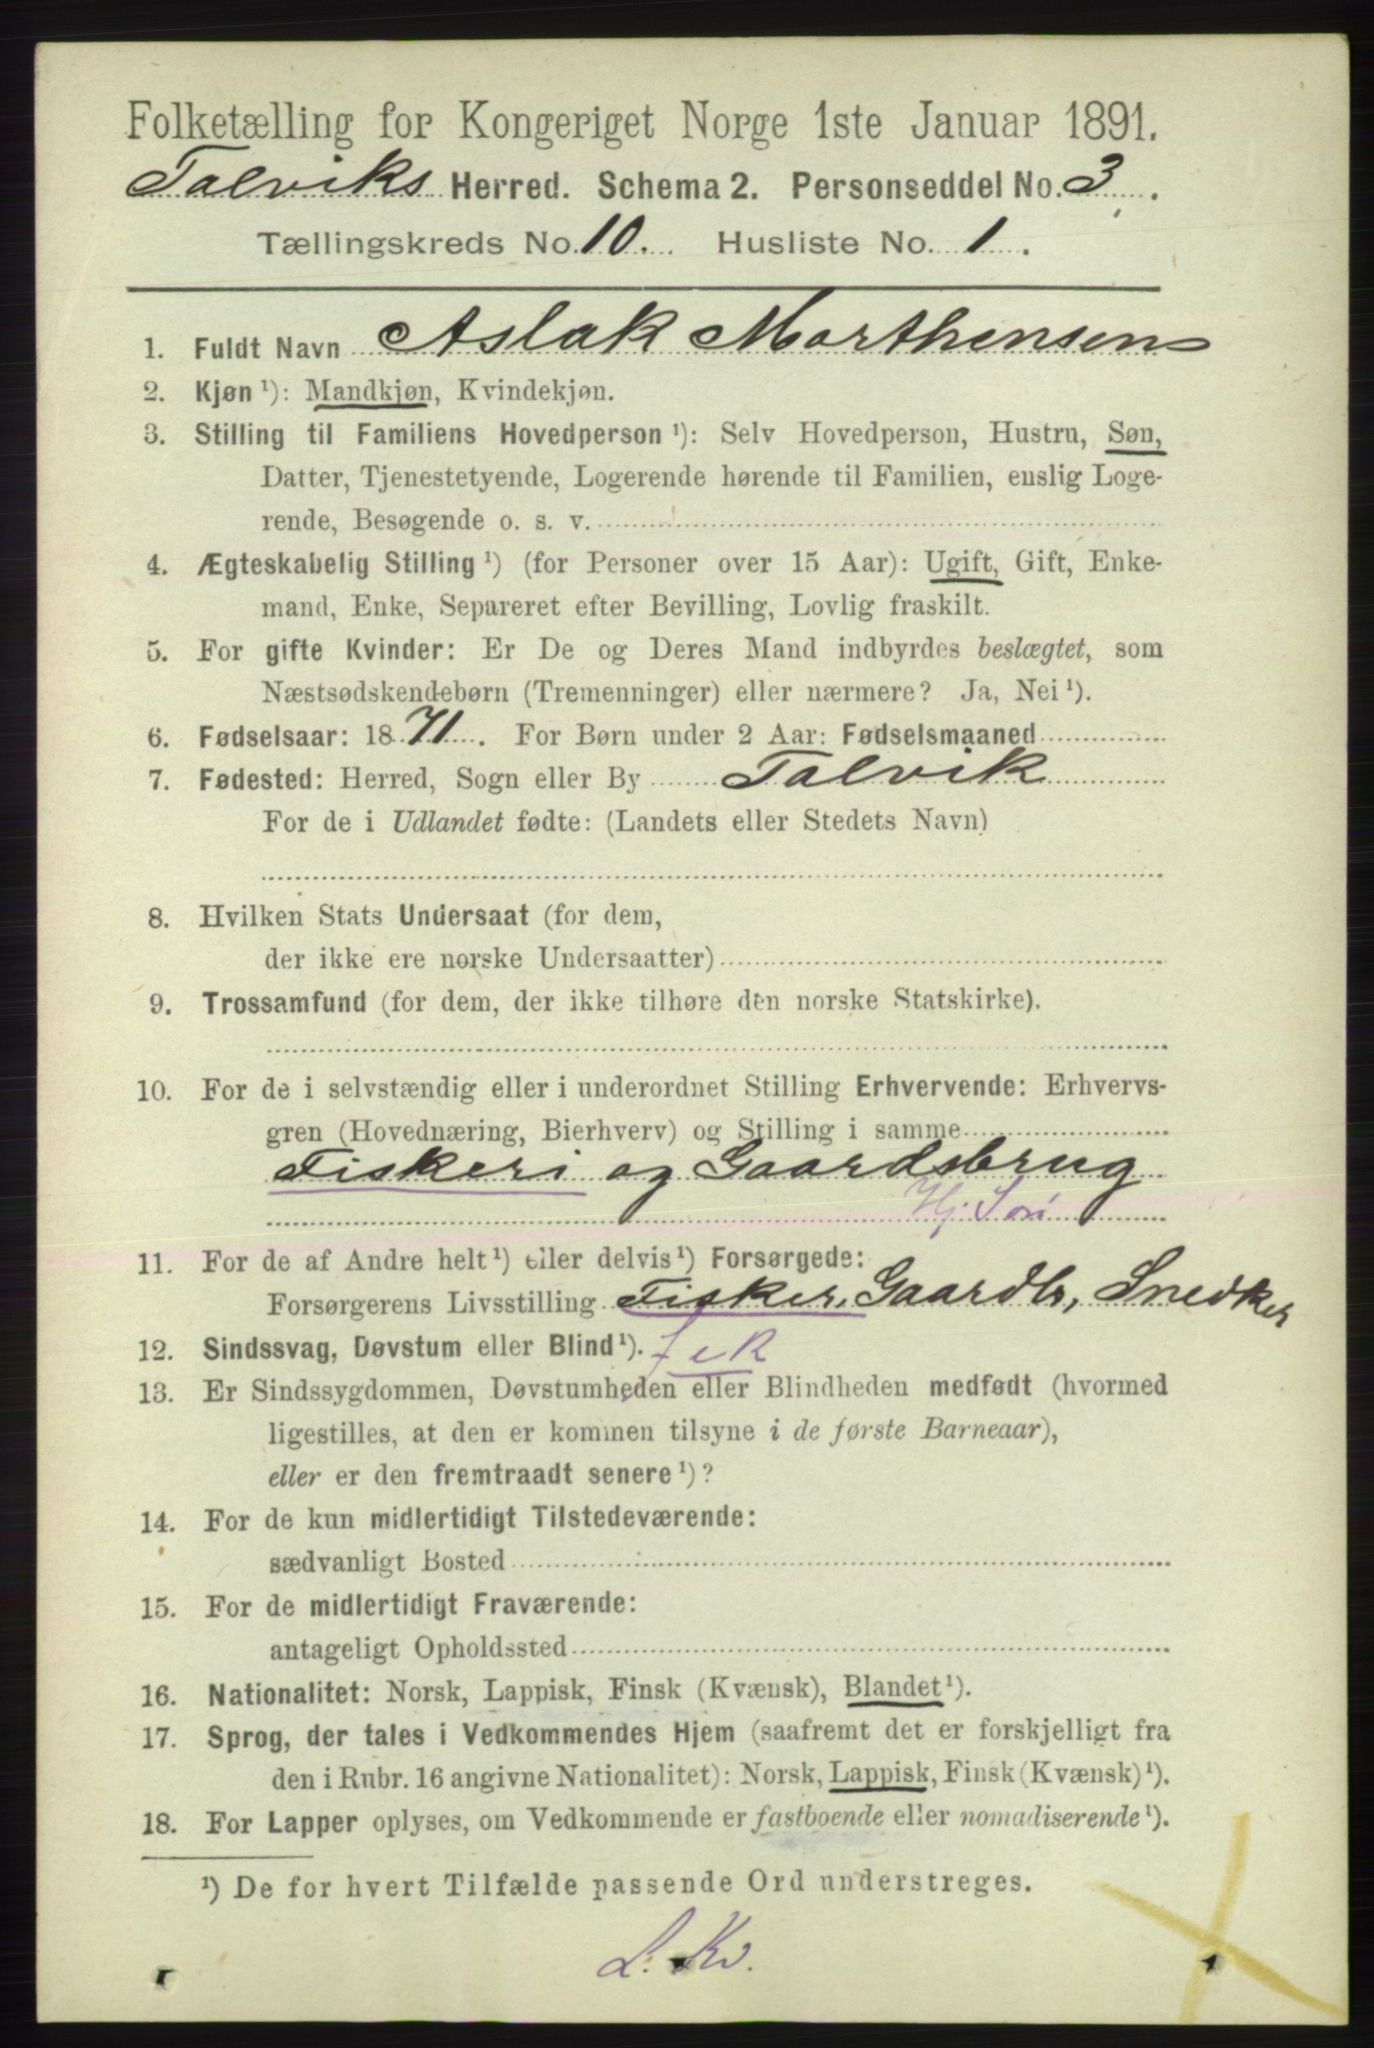 Folketælling for Kongeriget Norge 1ste Januar 1891.
Talviks Herred. Schema 2. Personseddel No. 3.
Tællingskreds No. 10. Husliste No. 1.
1. Fuldt Navn Aslak Morthensen
2. Kjøn ¹): Mandkjøn, Kvindekjøn.
3. Stilling til Familiens Hovedperson ¹): Selv Hovedperson, Hustru, Søn,
Datter, Tjenestetyende, Logerende hørende til Familien, enslig Loge-
rende, Besøgende o. s. v.
4. Ægteskabelig Stilling ¹) (for Personer over 15 Aar): Ugift, Gift, Enke-
mand, Enke, Separeret efter Bevilling, Lovlig fraskilt.
5. For gifte Kvinder: Er De og Deres Mand indbyrdes beslægtet, som
Næstsødskendebørn (Tremenninger) eller nærmere? Ja, Nei ¹).
6. Fødselsaar: 1871. For Børn under 2 Aar: Fødselsmaaned
7. Fødested: Herred, Sogn eller By Talvik
For de i Udlandet fødte: (Landets eller Stedets Navn)
8. Hvilken Stats Undersaat (for dem,
der ikke ere norske Undersaatter)
9. Trossamfund (for dem, der ikke tilhøre den norske Statskirke).
10. For de i selvstændig eller i underordnet Stilling Erhvervende: Erhvervs-
gren (Hovednæring, Bierhverv) og Stilling i samme
Fiskeri og Gaardsbrug
Hj.
11. For de af Andre helt ¹) eller delvis ¹) Forsørgede:
Forsørgerens Livsstilling Fisker, Gaardbr, Snedker
12. Sindssvag, Døvstum eller Blind ¹).
13. Er Sindssygdommen, Døvstumheden eller Blindheden medfødt (hvormed
ligestilles, at den er kommen tilsyne i de første Barneaar),
eller er den fremtraadt senere ¹)?
14. For de kun midlertidigt Tilstedeværende:
sædvanligt Bosted
15. For de midlertidigt Fraværende:
antageligt Opholdssted
16. Nationalitet: Norsk, Lappisk, Finsk (Kvænsk), Blandet ¹).
17. Sprog, der tales i Vedkommendes Hjem (saafremt det er forskjelligt fra
den i Rubr. 16 angivne Nationalitet): Norsk, Lappisk, Finsk (Kvænsk) ¹).
18. For Lapper oplyses, om Vedkommende er fastboende eller nomadiserende ¹).
¹) De for hvert Tilfælde passende Ord understreges.
L. Kv.